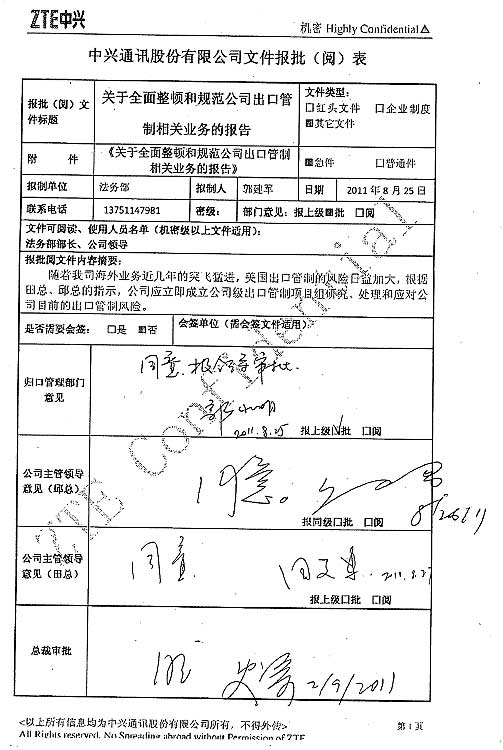 ZTE中兴
机密 Highly Confidential△
中兴通讯股份有限公司文件报批（阅）表
报批（阅）文件标题
关于全面整顿和规范公司出口管制相关业务的报告
文件类型：
□红头文件 □企业制度
■其它文件
附 件
《关于全面整顿和规范公司出口管制相关业务的报告》
■急件 □普通件
拟制单位 法务部 拟制人 郭建军 日期 2011年8月25日
联系电话 13751147981 密级： 部门意见：报上级■批 □阅
文件可阅读、使用人员名单（机密级以上文件适用）：
法务部部长、公司领导
报批阅文件内容摘要：
随着我司海外业务近几年的突飞猛进，美国出口管制的风险日益加大，根据
田总、邱总的指示，公司应立即成立公司级出口管制项目组研究、处理和应对公
司目前的出口管制风险。
是否需要会签： □是 ■否 会签单位（需会签文件适用）：
归口管理部门意见
同意，报领导审批.
2011.8.25
报上级□批 □阅
公司主管领导意见（邱总）
同意。
报同级□批 □阅
公司主管领导意见（田总）
同意
报上级□批 □阅
总裁审批
2/9/2011
ZTE Confidential
<以上所有信息均为中兴通讯股份有限公司所有，不得外传>
第1页
All Rights reserved, No Spreading abroad without Permission of ZTE